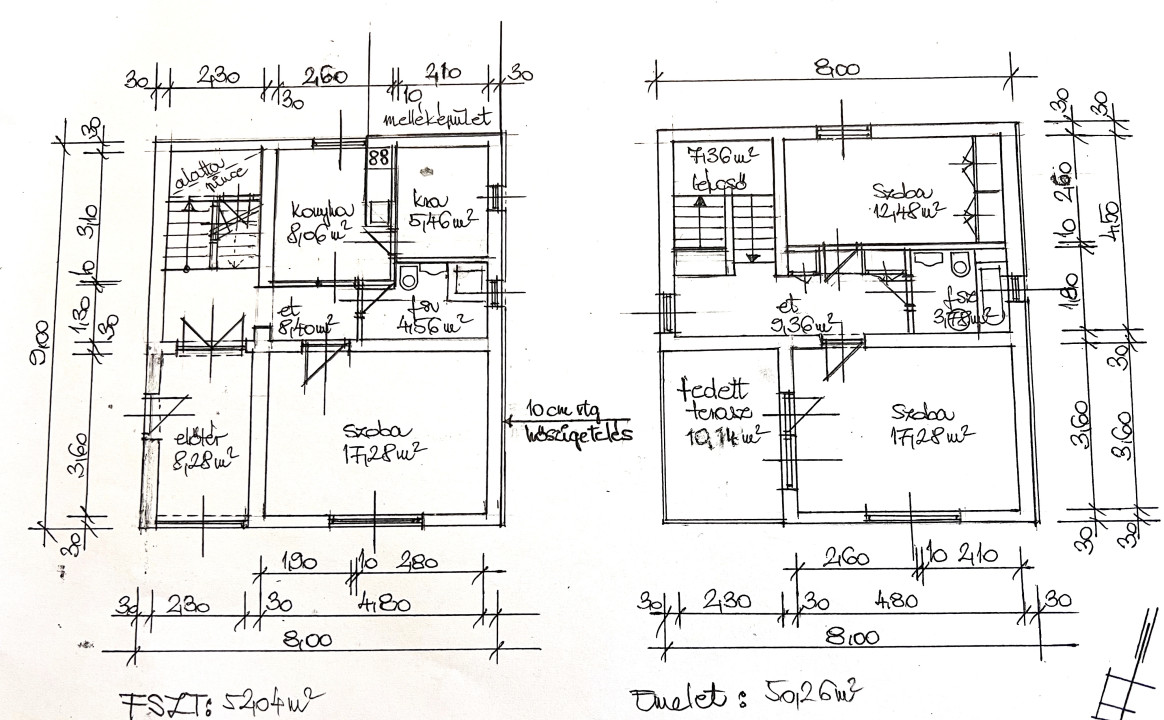 30 2,30 2,60 2,10 30
30 10
melléképület
30
3,10
10
1,30
30
3,60
30
9,00
alatta
pince
Konyha
8,06 m²
kra
5,46 m²
et
8,40 m²
fsz
4,56 m²
előtér
8,28 m²
Szoba
17,28 m²
10 cm vtg
hőszigetelés
1,90 10 2,80
30 2,30 30 4,80
8,00
FSZT: 52,04 m²
8,00
7,36 m²
lépcső
Szoba
12,48 m²
et
9,36 m²
fsz
3,78 m²
fedett
terasz
10,14 m²
Szoba
17,28 m²
30 30
2,60
4,50
10
1,80
30
30
3,60 3,60
30 30
2,60 10 2,10
30 2,30 30 4,80 30
8,00
Emelet: 50,26 m²